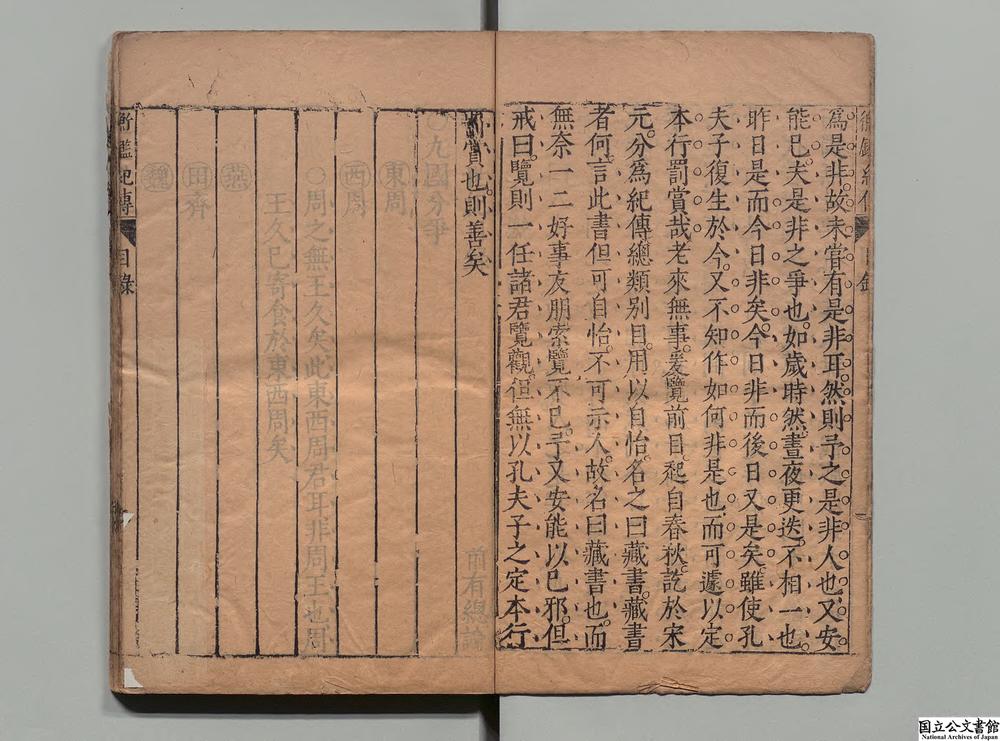 爲是非故未嘗有是非耳然則予之是非人也又安
能已夫是非之爭也如歲時然晝夜更迭不相一也
昨日是而今日非矣今日非而後日又是矣雖使孔
夫子復生於今又不知作如何非是也而可遽以定
本行罰賞哉老來無事爰覽前目起自春秋訖於宋
元分爲紀傳總類別目用以自怡名之曰藏書藏書
者何言此書但可自怡不可示人故名曰藏書也而
無奈一二好事友朋索覽不已予又安能以已邪但
戒曰覽則一任諸君覽觀但無以孔夫子之定本行
罰賞也則善矣
目錄
○九國分爭
前有總論
東周
西周
○周之無王久矣此東西周君耳非周王也周
王久已寄食於東西周矣
燕
田齊
魏
衡鑑紀傳
目錄
国立公文書館
National Archives of Japan